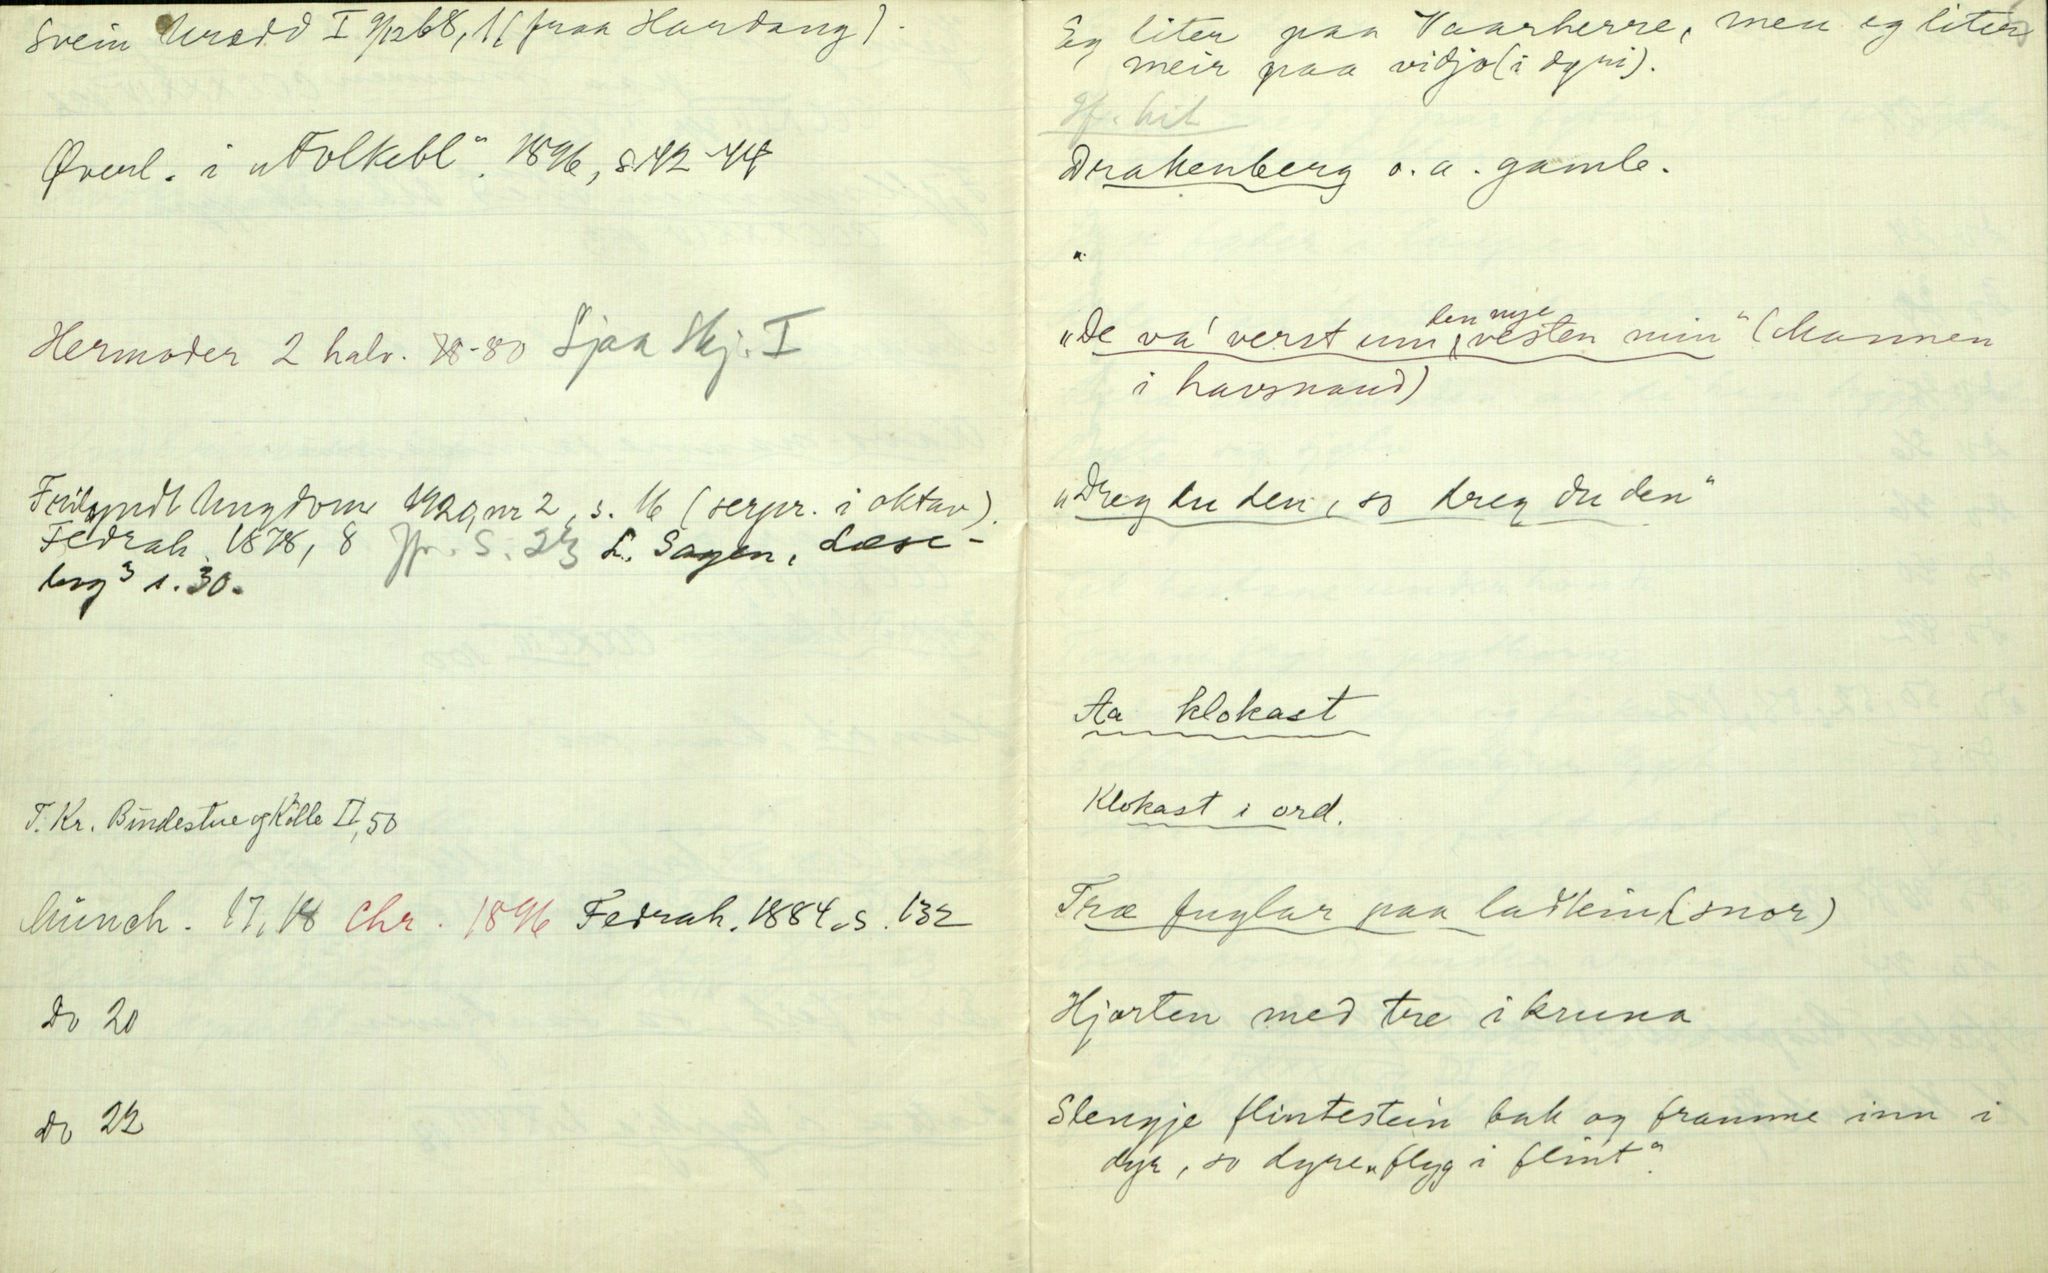 Svein Urædd I 9/12 68, 1 (fraa Hardang).
Øverl. i „Folkebl“. 1896, s. 42-44
Hermoder 2 halv. 78-80 Sjaa Skj. I
Frilyndt Ungdom 1929, nr 2, s. 16 (serpr. i oktav).
Fedrah. 1878, 8 Jfr. S. L. Sagen, Læse-
bog³ s. 30.
T. Kr. Bindestue og Kölle II, 50
Münch. 17, 18 Chr. 1896 Fedrah. 1884, s. 132
Do 20
Do 22
Eg liter paa Vaarherre, men eg liter
meir paa vidjo (i dyri).
Drakenberg o. a. gamle.
"
„De va' verst um den nye vesten min“ (Mannen
i havsnaud)
„Dreg du den, so dreg du den“
Aa klokast
Klokast i ord.
Træ fuglar paa ladstein (snor)
Hjorten med tre i kruna
Slengje flintestein bak og framme inn i
dyr, so dyre „flyg i flint“.